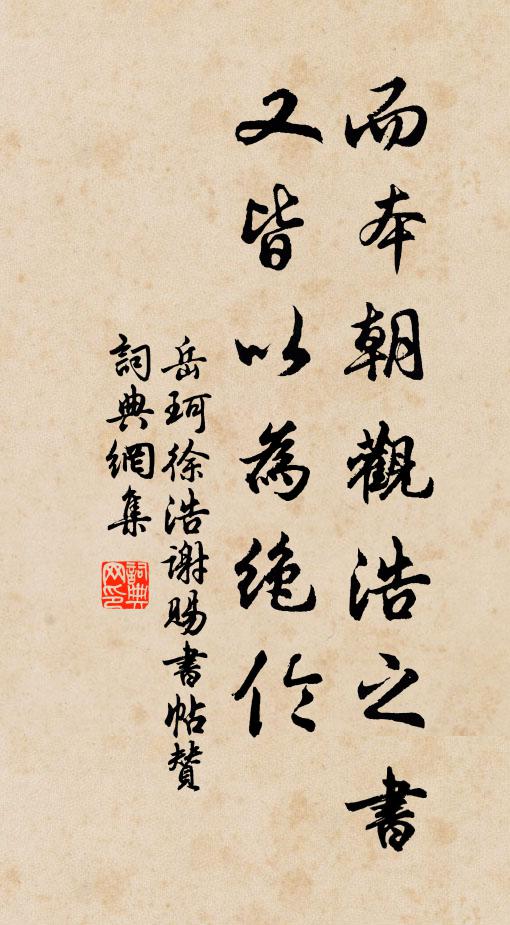 而本朝觀浩之書
又皆以為絶倫
岳珂徐浩謝賜書帖贊
詞典網集
詞典
网印